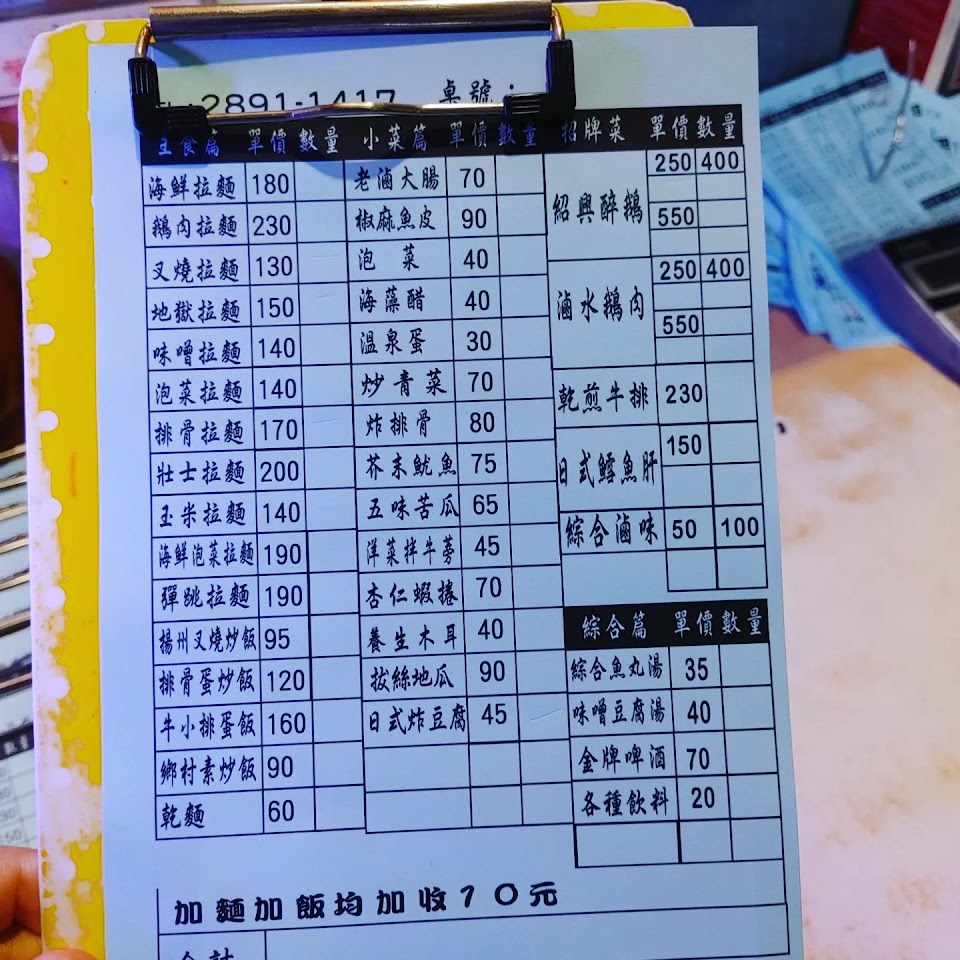 2891-1417 桌號：
主食篇 單價 數量 小菜篇 單價 數量 招牌菜 單價 數量
海鮮拉麵 180
鵝肉拉麵 230
叉燒拉麵 130
地獄拉麵 150
味噌拉麵 140
泡菜拉麵 140
排骨拉麵 170
壯士拉麵 200
玉米拉麵 140
海鮮泡菜拉麵 190
彈跳拉麵 190
揚州叉燒炒飯 95
排骨蛋炒飯 120
牛小排蛋飯 160
鄉村素炒飯 90
乾麵 60
老滷大腸 70
椒麻魚皮 90
泡菜 40
海藻醋 40
溫泉蛋 30
炒青菜 70
炸排骨 80
芥末魷魚 75
五味苦瓜 65
洋菜拌牛蒡 45
杏仁蝦捲 70
養生木耳 40
拔絲地瓜 90
日式炸豆腐 45
紹興醉鵝 250 400
550
滷水鵝肉 250 400
550
乾煎牛排 230
日式鱈魚肝 150
綜合滷味 50 100
綜合篇 單價 數量
綜合魚丸湯 35
味噌豆腐湯 40
金牌啤酒 70
各種飲料 20
加麵加飯均加收10元
合計